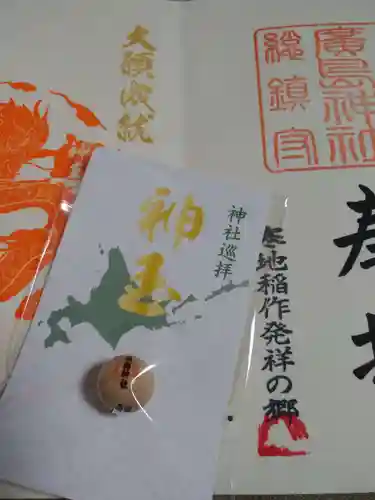 大願成就
廣島神社
総鎮守
神玉
神社巡拝
寒地稲作発祥の郷
奉拝